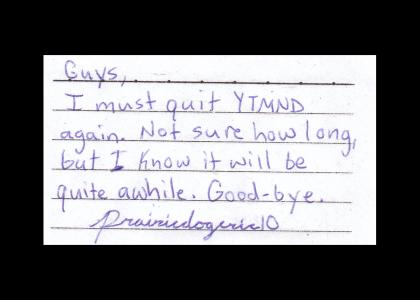 Guys,
I must quit YTMND
again. Not sure how long,
but I know it will be
quite awhile. Good-bye.
prairiedogeric10